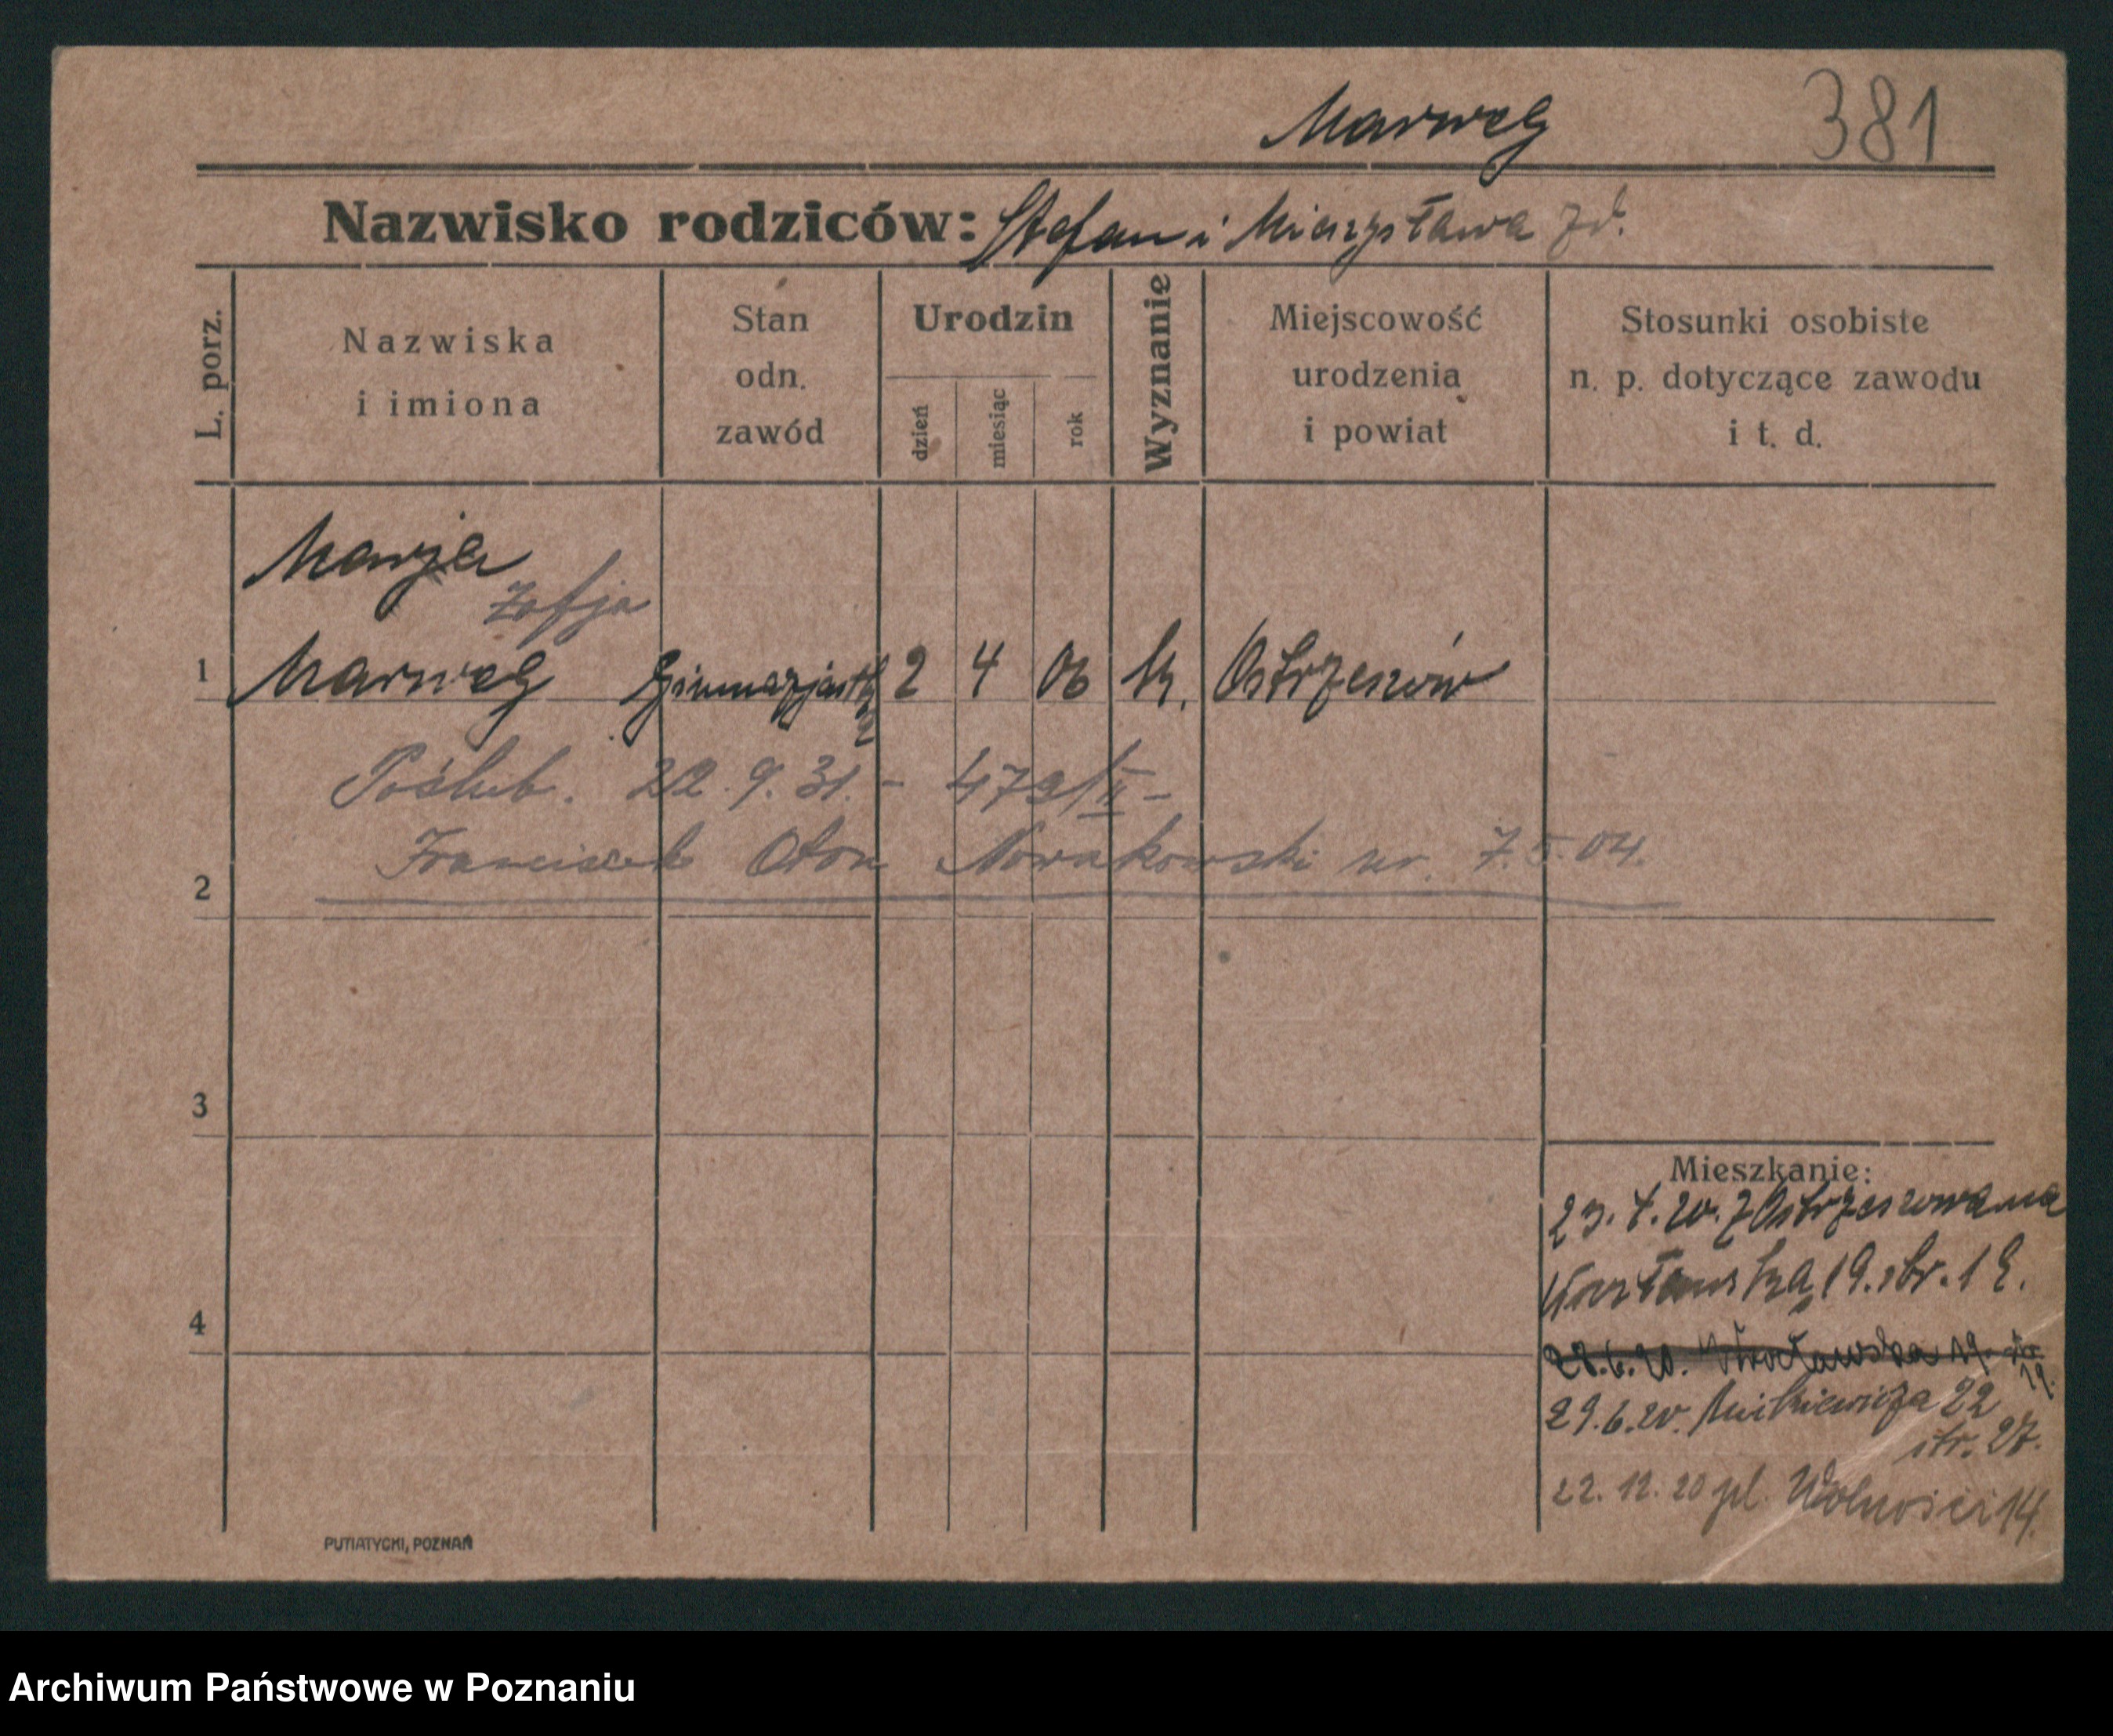 Marweg 381
Nazwisko rodziców: Stefan i Mieczysława
L. porz.
Nazwiska
i imiona
Stan
odn.
zawód
Urodzin
dzień
miesiąc
rok
Wyznanie
Miejscowość
urodzenia
i powiat
Stosunki osobiste
n. p. dotyczące zawodu
i t. d.
Marja
Zofja
1 Marweg Gimnazjastka 2 4 06 k. Ostrzeszów
Poślub. 22.9.31. – 479/II –
Franciszek Oton Nowakowski ur. 7.5.04.
2
3
4
Mieszkanie:
23.4.20. z Ostrzeszowa na
Wrocławską 19. str. 19.
28.6.20. Wrocławska 19. str.
19.
29.6.20. Mickiewicza 22
str. 27.
22.12.20 pl. Wolności 14.
PUTIATYCKI, POZNAŃ
Archiwum Państwowe w Poznaniu